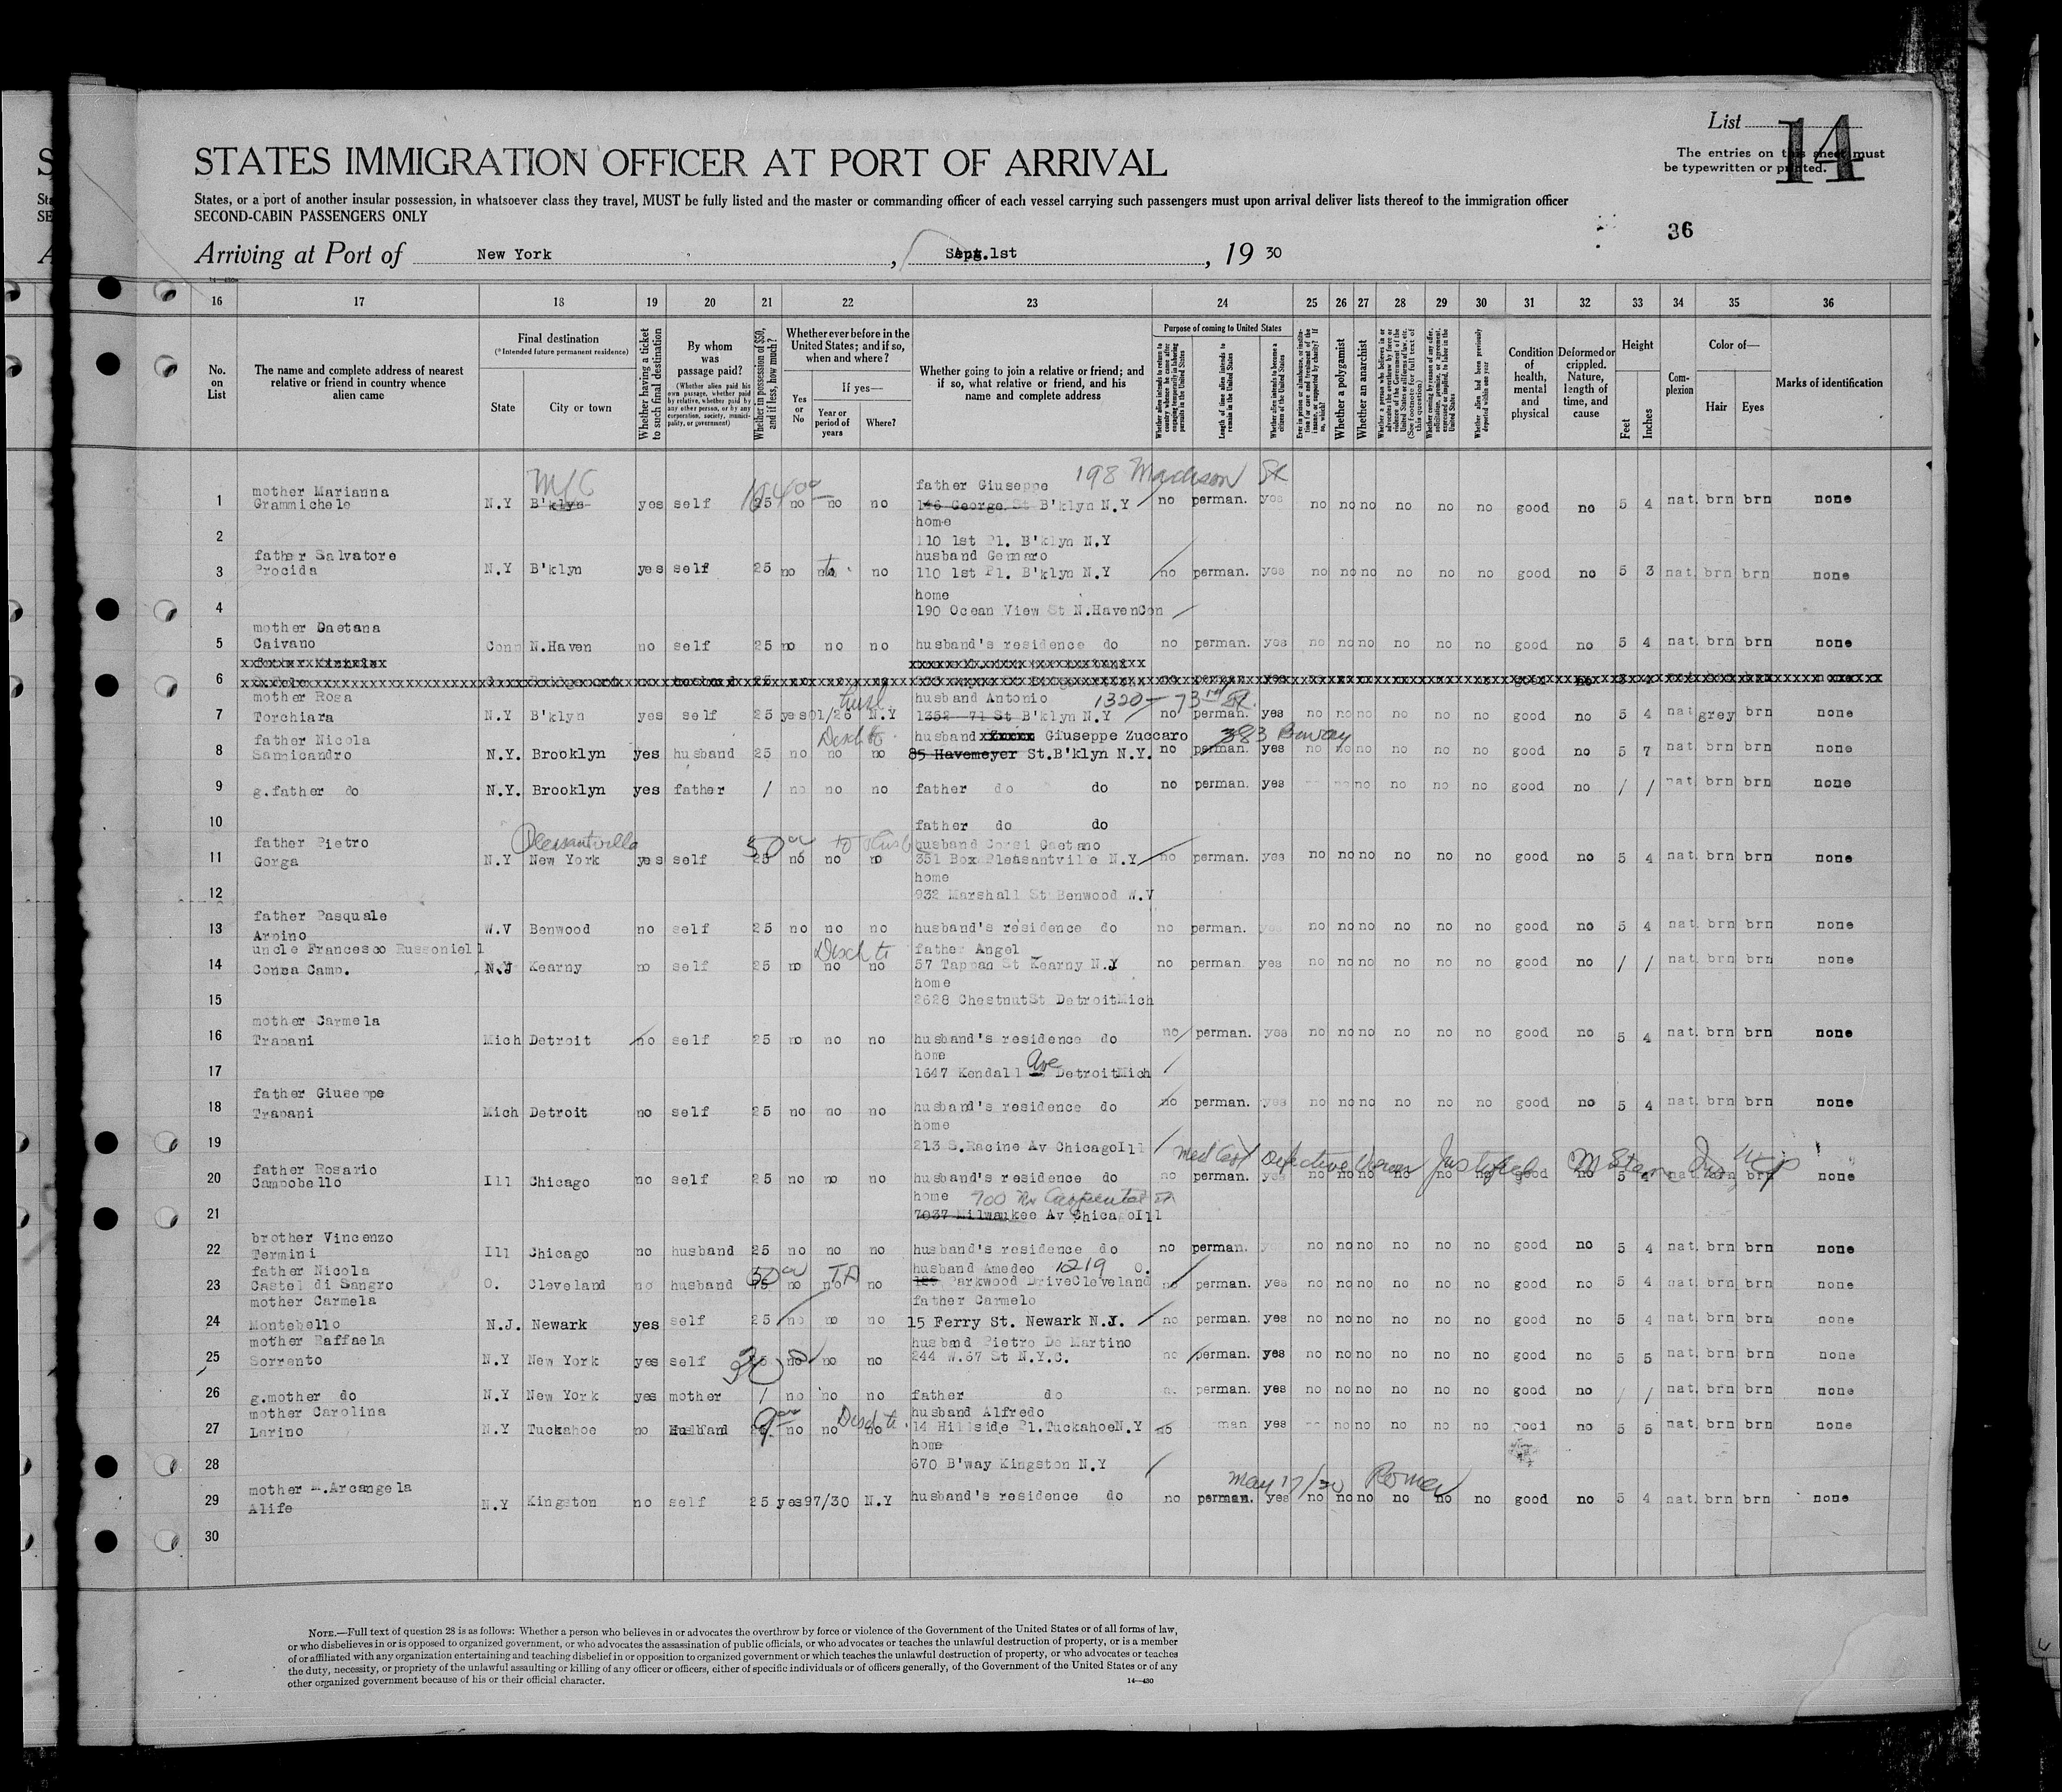 List 14
The entries on this sheet must
be typewritten or printed.
STATES IMMIGRATION OFFICER AT PORT OF ARRIVAL
States, or a port of another insular possession, in whatsoever class they travel, MUST be fully listed and the master or commanding officer of each vessel carrying such passengers must upon arrival deliver lists thereof to the immigration officer
SECOND-CABIN PASSENGERS ONLY
36
Arriving at Port of New York, Sept. 1st, 19 30
16 17 18 19 20 21 22 23 24 25 26 27 28 29 30 31 32 33 34 35 36
No. on List
The name and complete address of nearest relative or friend in country whence alien came
Final destination
(*Intended future permanent residence)
State
City or town
Whether having a ticket to such final destination
By whom was passage paid?
(Whether alien paid his own passage, whether paid by relative, whether paid by any other person, or by any corporation, society, municipality, or government)
Whether in possession of $50, and if less, how much?
Whether ever before in the United States; and if so, when and where?
Yes or No
If yes—
Year or period of years
Where?
Whether going to join a relative or friend; and if so, what relative or friend, and his name and complete address
Purpose of coming to United States
Length of time alien intends to remain in the United States
Whether alien intends to become a citizen of the United States
Whether a polygamist
Whether an anarchist
Condition of health, mental and physical
Deformed or crippled. Nature, length of time, and cause
Height
Feet
Inches
Complexion
Color of—
Hair
Eyes
Marks of identification
198 Madison St
mother Marianna father Giuseppe
1 Grammichele N.Y B'klyn yes self 25 no no no 146 George St B'klyn N.Y no perman. yes no no no no no no good no 5 4 nat. brn brn none
home
2 110 1st Pl. B'klyn N.Y
father Salvatore husband Gennaro
3 Procida N.Y B'klyn yes self 25 no no no 110 1st Pl. B'klyn N.Y no perman. yes no no no no no no good no 5 3 nat. brn brn none
home
4 190 Ocean View St N.Haven Con
mother Gaetana
5 Caivano Conn N.Haven no self 25 no no no husband's residence do no perman. yes no no no no no no good no 5 4 nat. brn brn none
6
mother Rosa husband Antonio 1320 - 73rd St.
7 Torchiara N.Y B'klyn yes self 25 yes 01/26 N.Y 1352 71 St B'klyn N.Y no perman. yes no no no no no no good no 5 4 nat grey brn none
father Nicola Disch to husband Giuseppe Zuccaro 383
8 Sannicandro N.Y. Brooklyn yes husband 25 no no no 85 Havemeyer St.B'klyn N.Y. no perman. yes no no no no no no good no 5 7 nat. brn brn none
9 g.father do N.Y. Brooklyn yes father / no no no father do do no perman. yes no no no no no good no / / nat. brn brn none
10 father do do
father Pietro Pleasantville 50 to husb husband Corsi Gaetano
11 Gorga N.Y New York yes self 25 no no no 351 Box Pleasantville N.Y no perman. yes no no no no no no good no 5 4 nat. brn brn none
home
12 932 Marshall St Benwood W.V
father Pasquale
13 Arpino W.V Benwood no self 25 no no no husband's residence do no perman. yes no no no no no no good no 5 4 nat. brn brn none
uncle Francesco Russoniell Disch to father Angel
14 Conza Camp. N.J Kearny no self 25 no no no 57 Tappan St Kearny N.J no perman yes no no no no no no good no / / nat. brn brn none
home
15 2628 ChestnutSt DetroitMich
mother Carmela
16 Trapani Mich Detroit no self 25 no no no husband's residence do no perman. yes no no no no no no good no 5 4 nat. brn brn none
home
17 1647 Kendall Ave DetroitMich
father Giuseppe
18 Trapani Mich Detroit no self 25 no no no husband's residence do no perman. yes no no no no no no good no 5 4 nat. brn brn none
home
19 213 S.Racine Av ChicagoIll
Med Cert Defective Vision
father Rosario
20 Campobello Ill Chicago no self 25 no no no husband's residence do no perman. yes no no no no no no good no 5 4 nat. brn brn none
home 900 Carpenter St
21 7037 Milwaukee Av ChicagoIll
brother Vincenzo
22 Termini Ill Chicago no husband 25 no no no husband's residence do no perman. no no no no no no good no 5 4 nat. brn brn none
father Nicola husband Amedeo 1219 O.
23 Castel di Sangro O. Cleveland no husband 50 no no no Parkwood DriveCleveland no perman. yes no no no no no no good no 5 4 nat. brn brn none
mother Carmela father Carmelo
24 Montebello N.J. Newark yes self 25 no no no 15 Ferry St. Newark N.J. no perman. yes no no no no no no good no 5 4 nat. brn brn none
mother Raffaela husband Pietro De Martino
25 Sorrento N.Y New York yes self 30 no no no 244 W.67 St N.Y.C. no perman. yes no no no no no no good no 5 5 nat. brn brn none
26 g.mother do N.Y New York yes mother / no no no father do perman. yes no no no no no no good no / / nat. brn brn none
mother Carolina Disch to husband Alfredo
27 Larino N.Y Tuckahoe no Husband no no no 14 Hillside Pl.TuckahoeN.Y no man yes no no no no no good no 5 5 nat. brn brn none
home
28 670 B'way Kingston N.Y
May 17/30 Roma
mother M.Arcangela
29 Alife N.Y Kingston no self 25 yes 97/30 N.Y husband's residence do no perman. yes no no no no no no good no 5 4 nat. brn brn none
30
NOTE.—Full text of question 28 is as follows: Whether a person who believes in or advocates the overthrow by force or violence of the Government of the United States or of all forms of law,
or who disbelieves in or is opposed to organized government, or who advocates the assassination of public officials, or who advocates or teaches the unlawful destruction of property, or is a member
of or affiliated with any organization entertaining and teaching disbelief in or opposition to organized government or which teaches the unlawful destruction of property, or who advocates or teaches
the duty, necessity, or propriety of the unlawful assaulting or killing of any officer or officers, either of specific individuals or of officers generally, of the Government of the United States or of any
other organized government because of his or their official character.
14—430